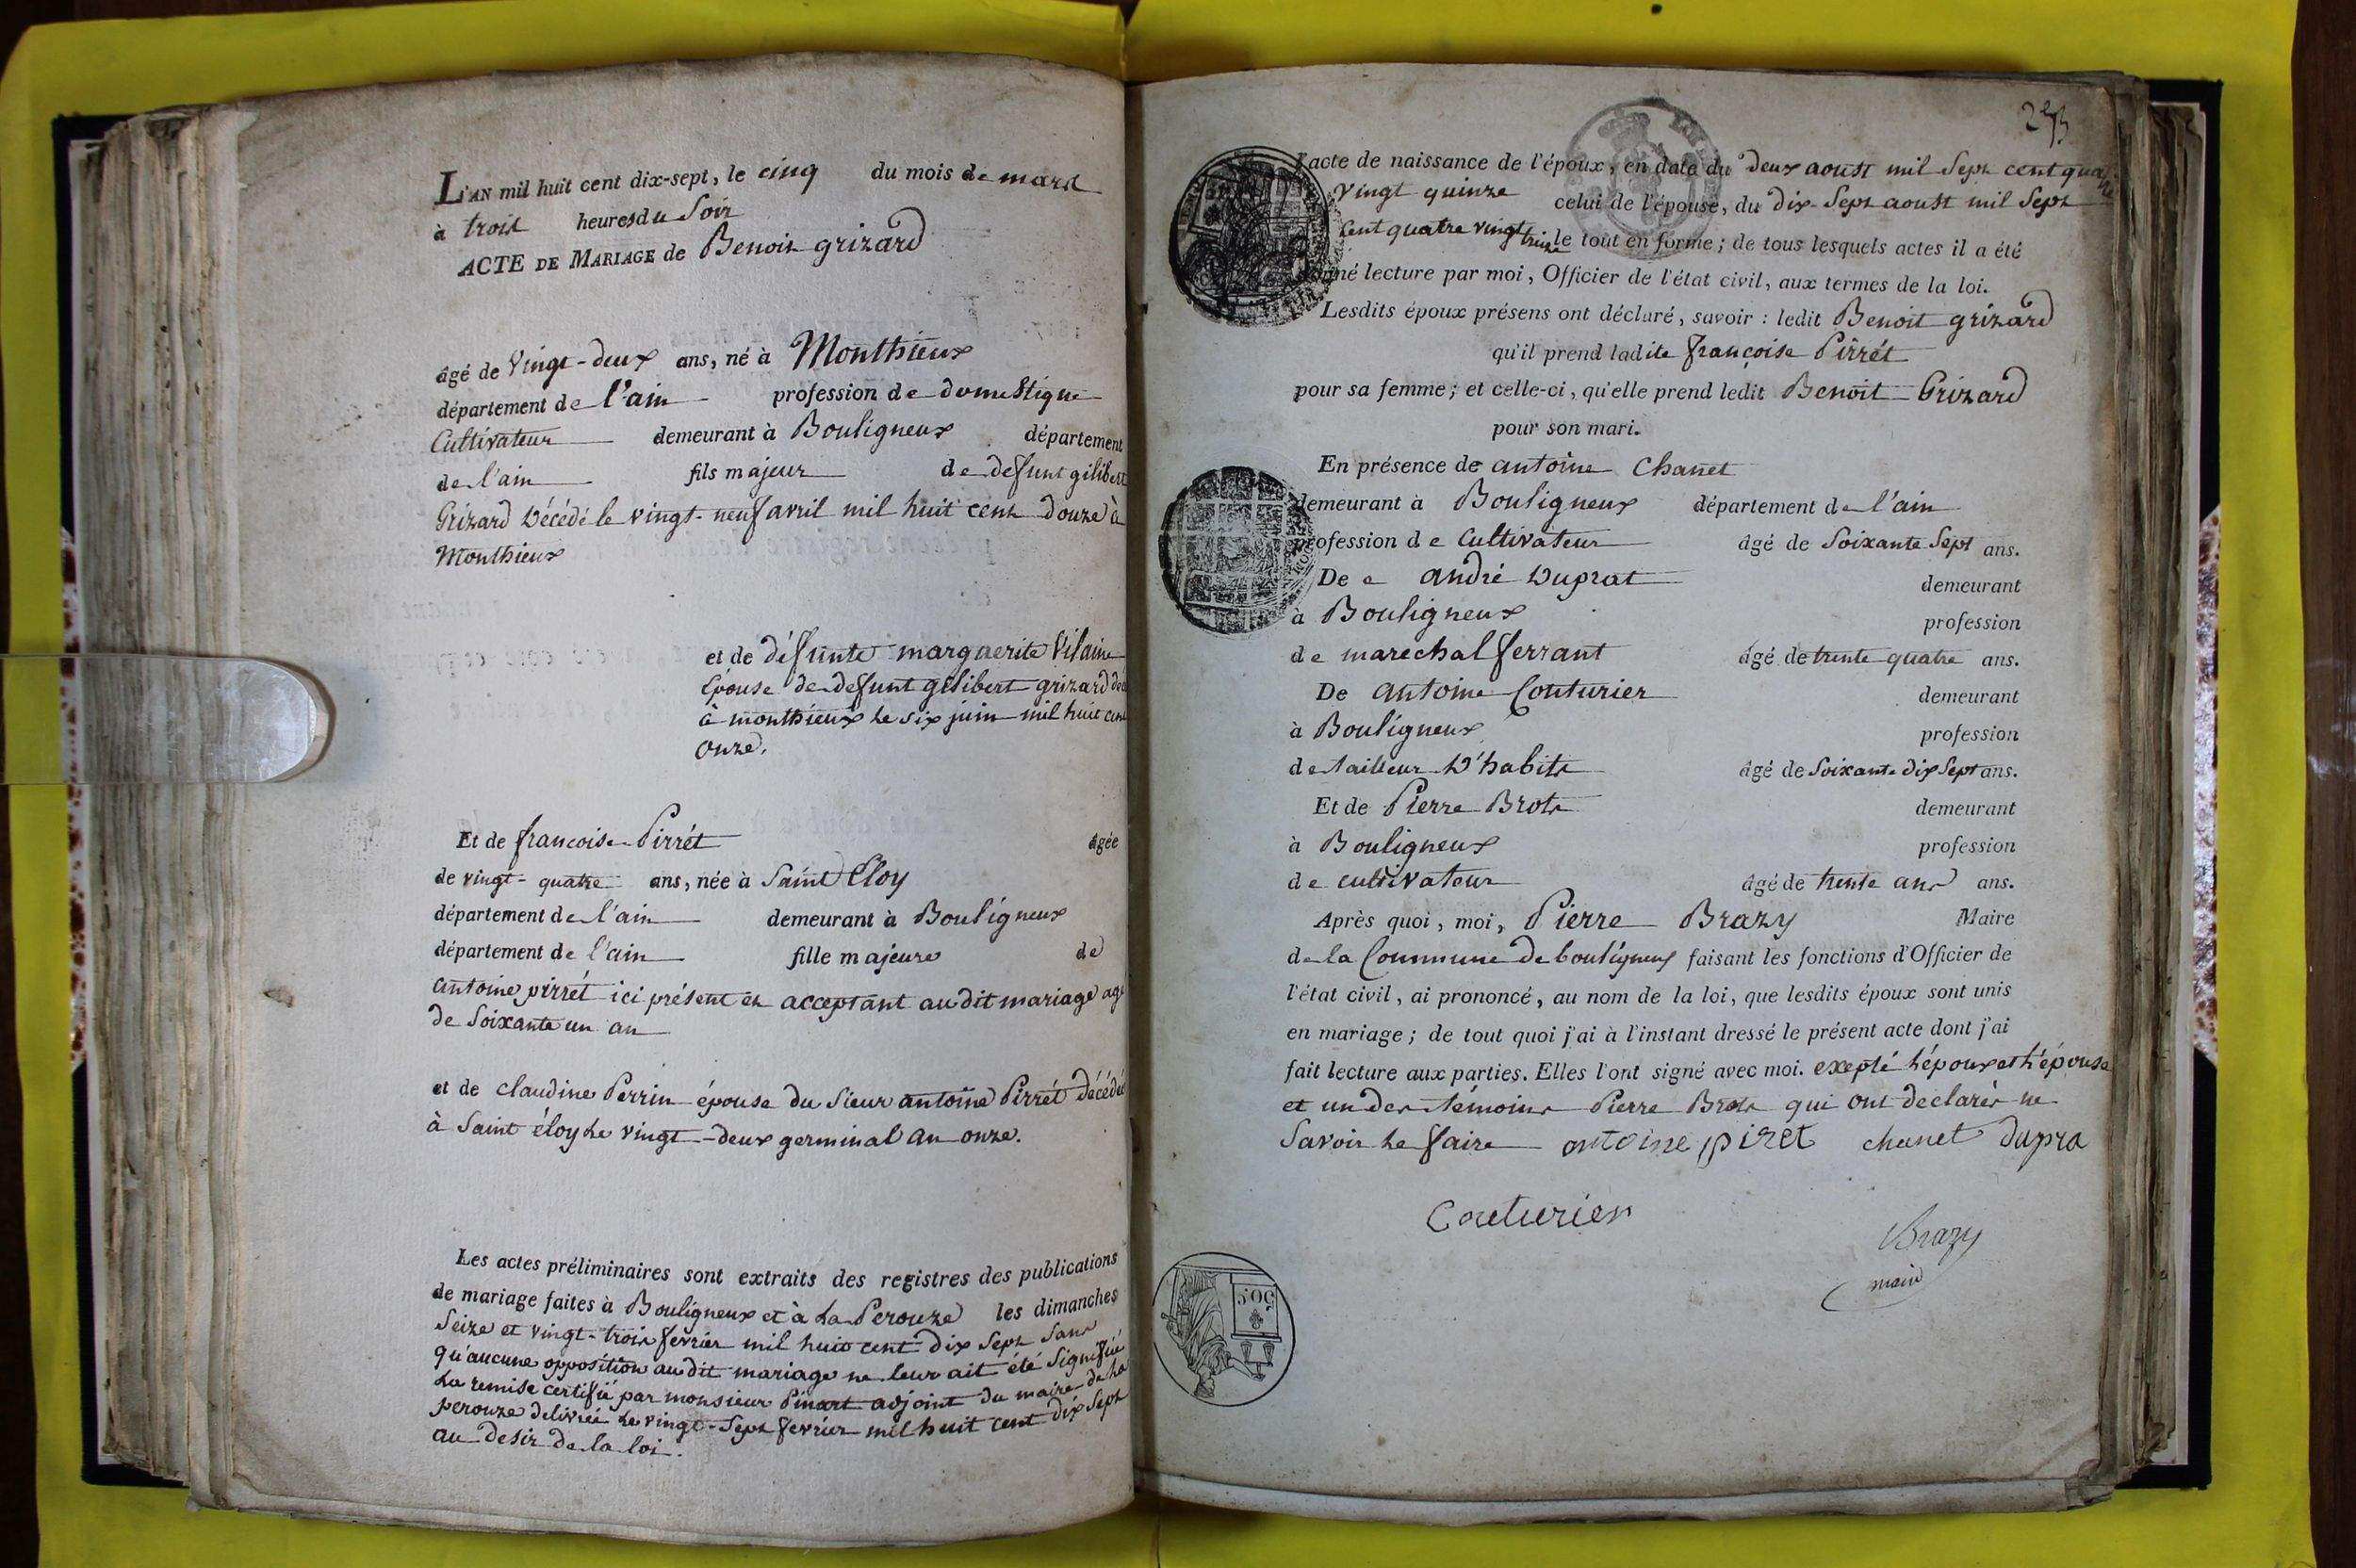 L'AN mil huit cent dix-sept, le cinq du mois de mars
à trois heures du Soir
ACTE DE MARIAGE de Benoit grizard
âgé de Vingt-deux ans, né à Monthieux
département de l'ain profession de domestique
Cultivateur demeurant à Bouligneux département
de l'ain fils majeur de defunt gilibert
Grizard décédé le vingt-neuf avril mil huit cent douze à
Monthieux
et de défunte marguerite Vilaine
épouse de defunt gilibert grizard
à monthieux le six juin mil huit cent
onze.
Et de francoise Pirrét âgée
de vingt-quatre ans, née à Saint Eloy
département de l'ain demeurant à Bouligneux
département de l'ain fille majeure de
antoine pirrét ici présent et acceptant audit mariage agé
de Soixante un an
et de claudine Perrin épouse du Sieur antoine Pirrét décédée
à Saint éloy le vingt-deux germinal an onze.
Les actes préliminaires sont extraits des registres des publications
de mariage faites à Bouligneux et à La Perouze les dimanches
Seize et vingt-trois fevrier mil huit cent dix Sept Sans
qu'aucune opposition audit mariage ne leur ait été Signifié
La remise certifié par monsieur Pinart adjoint du maire de la
perouze delivrée le vingt-Sept fevrier mil huit cent dix Sept
au desir de la loi.
2
l'acte de naissance de l'époux, en date du deux aoust mil Sept cent quatre
Vingt quinze celui de l'épouse, du dix-Sept aoust mil Sept
Cent quatre vingt treize le tout en forme; de tous lesquels actes il a été
donné lecture par moi, Officier de l'état civil, aux termes de la loi.
Lesdits époux présens ont déclaré, savoir : ledit Benoit grizard
qu'il prend ladite françoise Pirrét
pour sa femme; et celle-ci, qu'elle prend ledit Benoit Grizard
pour son mari.
En présence de antoine Chanet
demeurant à Bouligneux département de l'ain
profession de Cultivateur âgé de Soixante Sept ans.
De andré Duprat demeurant
à Bouligneux profession
de marechal ferrant âgé de trente quatre ans.
De antoine Couturier demeurant
à Bouligneux profession
de tailleur d'habits âgé de Soixante dix Sept ans.
Et de Pierre Brots demeurant
à Bouligneux profession
de cultivateur âgé de trente ans ans.
Après quoi, moi, Pierre Brazy Maire
de la Commune de bouligneux faisant les fonctions d'Officier de
l'état civil, ai prononcé, au nom de la loi, que lesdits époux sont unis
en mariage; de tout quoi j'ai à l'instant dressé le présent acte dont j'ai
fait lecture aux parties. Elles l'ont signé avec moi. excepté l'époux et l'épouse
et un des témoins Pierre Brots qui ont declarés ne
Savoir le faire antoine piret chanet dupra
Couturier
Brazy
maire
50C